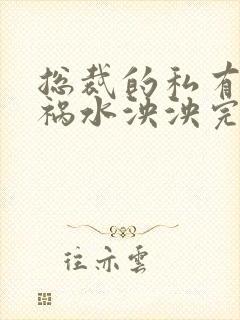 总裁的私有
祸水泱泱完
往亦雲